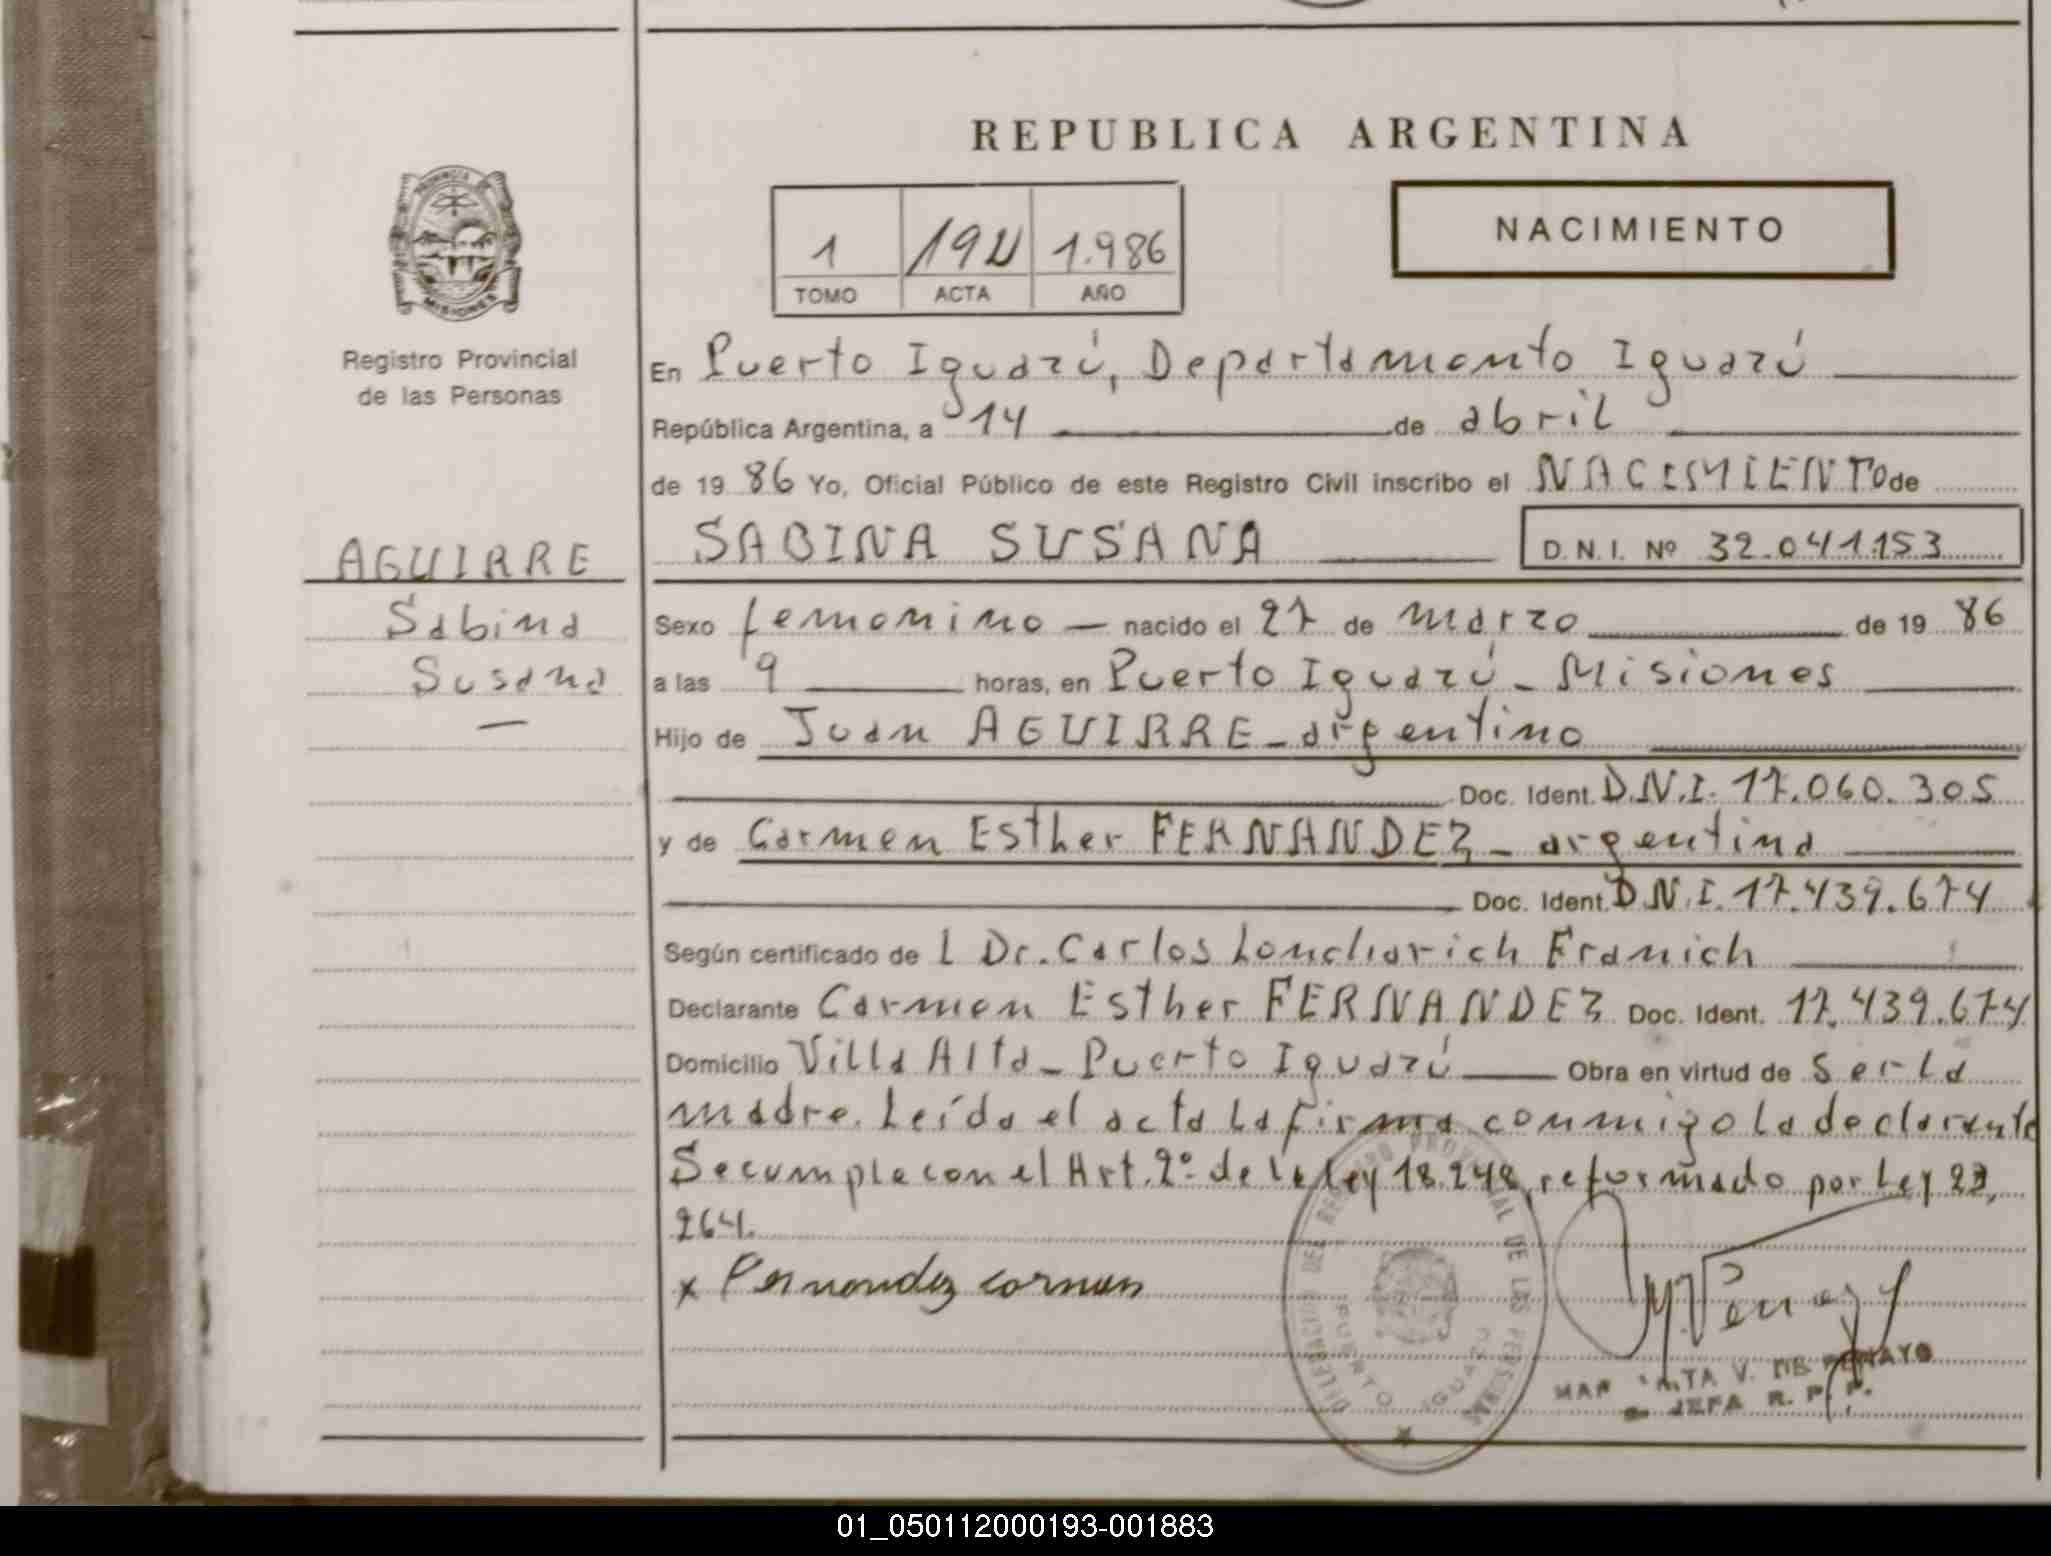 REPUBLICA ARGENTINA
NACIMIENTO
1 1.986
TOMO ACTA AÑO
PROVINCIA DE
MISIONES
Registro Provincial
de las Personas
En Puerto Iguazú, Departamento Iguazú
República Argentina, a 14 de abril
de 19 86 Yo, Oficial Público de este Registro Civil inscribo el NACIMIENTO de
AGUIRRE
Sabina
Susana
SABINA SUSANA D.N.I. Nº 32.041.153
Sexo femenino nacido el 27 de marzo de 19 86
a las 9 horas, en Puerto Iguazú - Misiones
Hijo de Juan AGUIRRE - argentino
Doc. Ident. D.N.I. 17.060.305
y de Carmen Esther FERNANDEZ - argentina
Doc. Ident. D.N.I. 17.439.674
Según certificado de l Dr. Carlos Franich
Declarante Carmen Esther FERNANDEZ Doc. Ident. 17.439.674
Domicilio Villa Alta - Puerto Iguazú Obra en virtud de ser la
madre. Leída el acta la firma conmigo la declarante
Se cumple con el Art. 2º de la Ley 18.248, reformado por Ley
264.
x Fernandez carmen
DELEGACION DEL REGISTRO PROVINCIAL DE LAS PERSONAS
PUERTO IGUAZU
V. DE PENAYO
JEFA R. P. P.
01_050112000193-001883